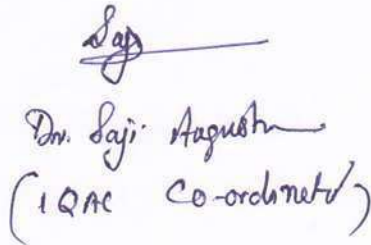 Saji
Dr. Saji Augustin
(IQAC Co-ordinator)